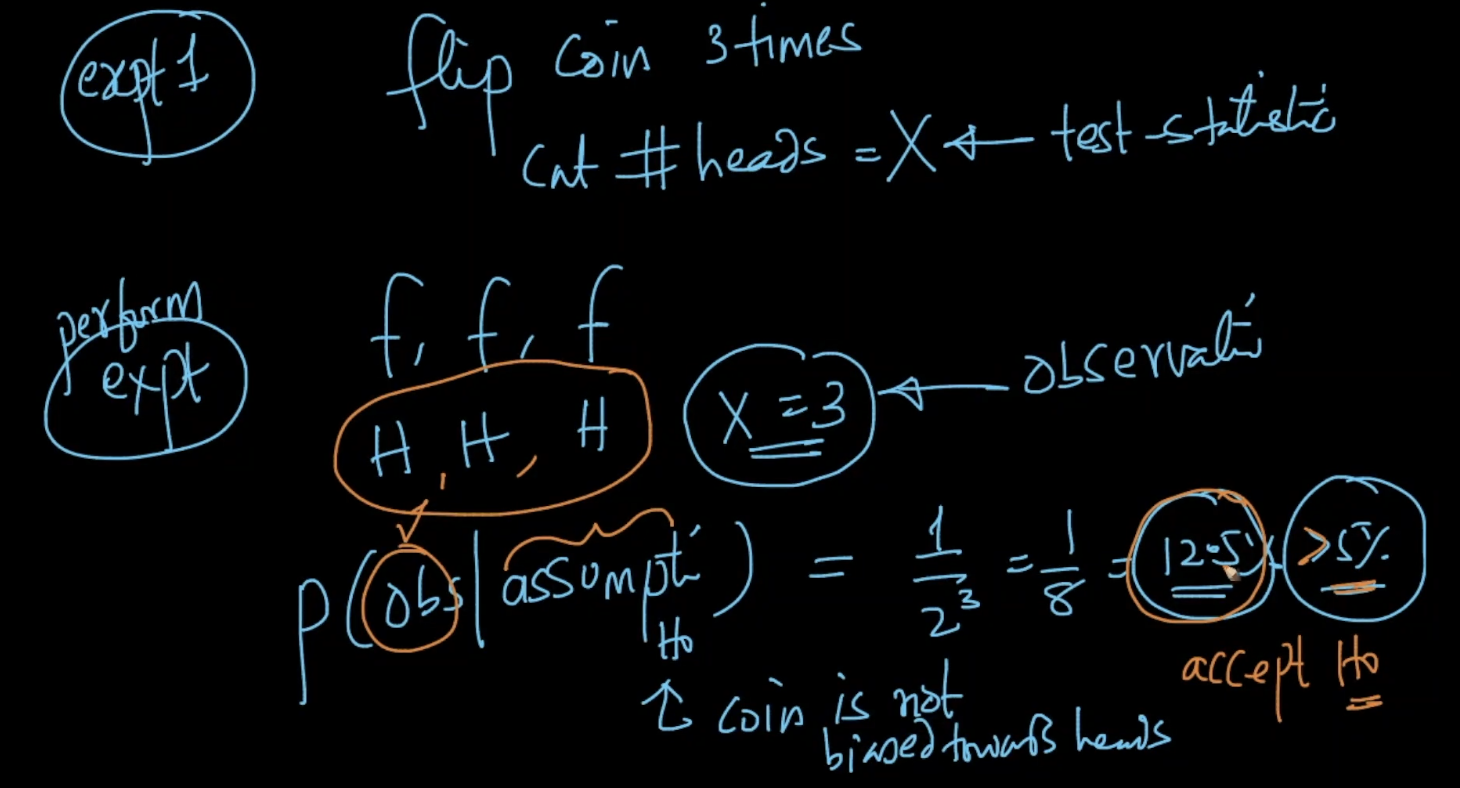 expt 1
flip coin 3 times
cnt # heads = X ← test-statistic
perform
expt
f, f, f
H, H, H
X = 3 ← observati
P(obs | assumpti) = 1/2³ = 1/8 = 12.5% > 5%
H₀
accept H₀
↑ coin is not
biased towards heads